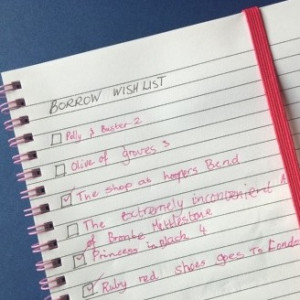 BORROW WISH LIST
Polly & Buster 2
Olive of groves 3
The shop at hoopers Bend
The Extremely inconvenient A
of Bronte Mettlestone
Princess in Black 4
Ruby red shoes goes To Londo